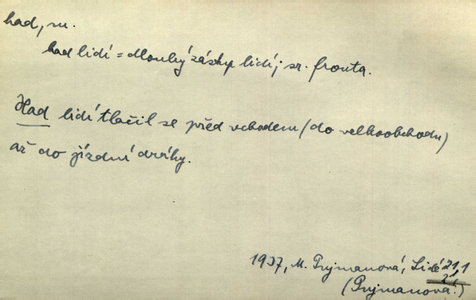 had, m.
had lidí = dlouhý zástup lidí; sr. fronta.
Had lidí tlačil se před vchodem (do velkoobchodu)
až do jízdní dráhy.
1937, M. Pujmanová, Lidé 21, 1
(Pujmanová.)